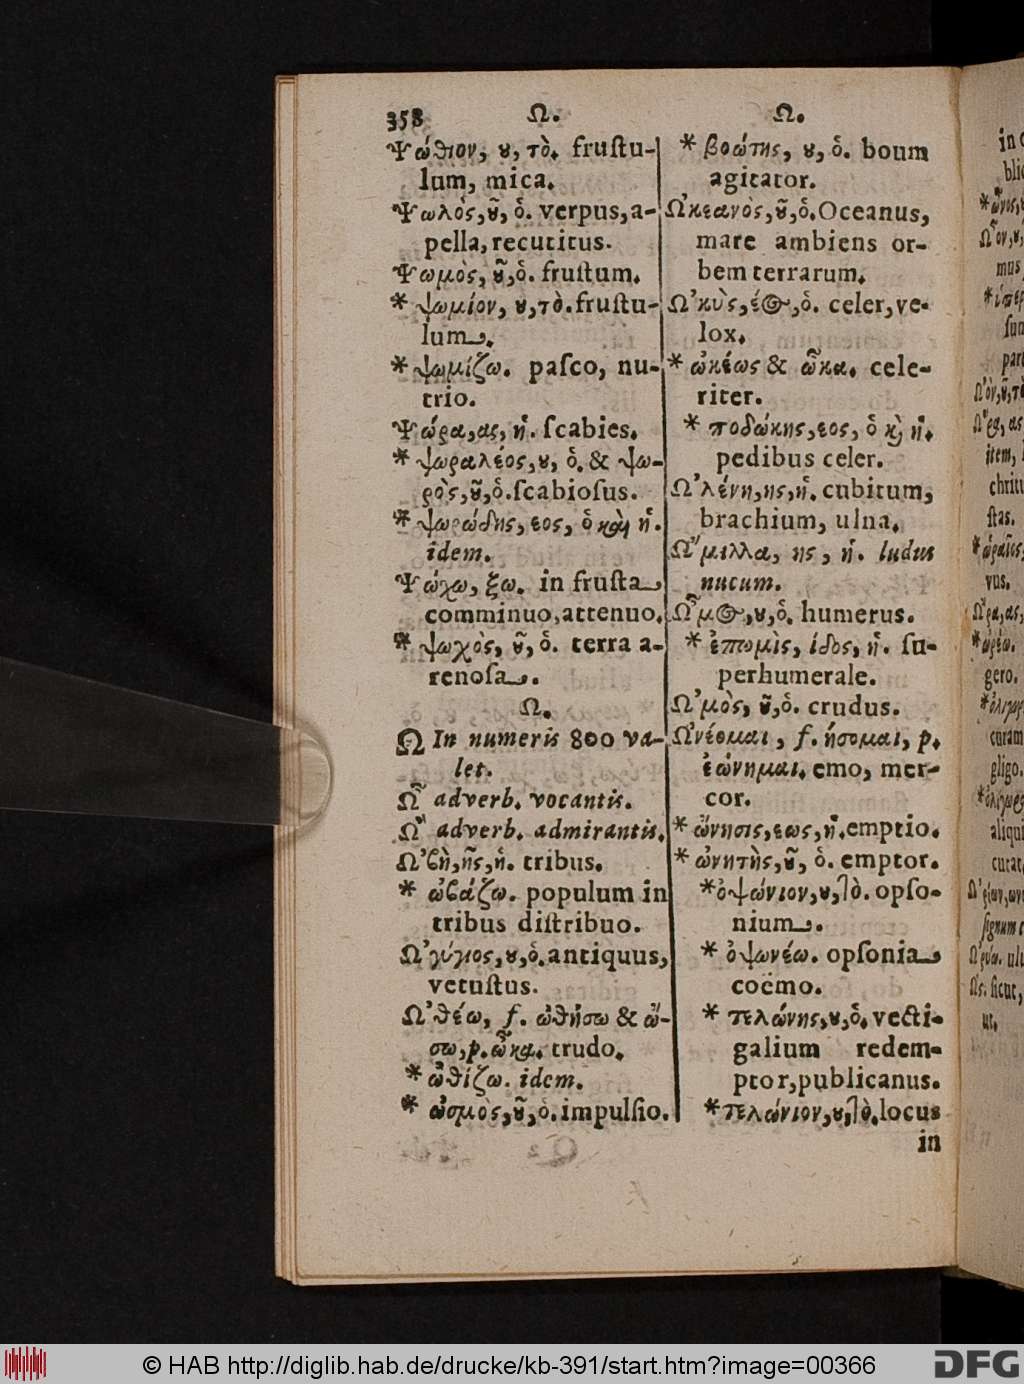 358 Ω. Ω.
Ψώθιον, ȣ, τὸ. fruſtu-
lum, mica.
Ψωλὸς, ȣ͂, ὁ. verpus, a-
pella, recutitus.
Ψωμὸς, ȣ͂, ὁ. fruſtum.
* ψωμίον, ȣ, τὸ. fruſtu-
lum.
* ψωμίζω. paſco, nu-
trio.
Ψώρα, ας, ἡ. ſcabies.
* ψωραλέος, ȣ, ὁ. & ψω-
ρὸς, ȣ͂, ὁ. ſcabioſus.
* ψωρώδης, εος, ὁ καὶ ἡ.
idem.
Ψώχω, ξω. in fruſta
comminuo, attenuo.
* ψωχὸς, ȣ͂, ὁ. terra a-
renoſa.
Ω.
Ω In numeris 800 va-
let.
Ὦ adverb. vocantis.
Ὢ adverb. admirantis.
Ὠβὴ, ῆς, ἡ. tribus.
* ὠβάζω. populum in
tribus diſtribuo.
Ὠγύγιος, ȣ, ὁ. antiquus,
vetuſtus.
Ὠθέω, f. ὠθήσω & ὤ-
σω, p. ὦκα. trudo.
* ὠθίζω. idem.
* ὠσμὸς, ȣ͂, ὁ. impulſio.
* βοώτης, ȣ, ὁ. boum
agitator.
Ὠκεανὸς, ȣ͂, ὁ. Oceanus,
mare ambiens or-
bem terrarum.
Ὠκὺς, έος, ὁ. celer, ve-
lox.
* ὠκέως & ὦκα. cele-
riter.
* ποδώκης, εος, ὁ κ̀ ἡ.
pedibus celer.
Ὠλένη, ης, ἡ. cubitum,
brachium, ulna.
Ὤμιλλα, ης, ἡ. ludus
nucum.
Ὦμος, ȣ, ὁ. humerus.
* ἐπωμὶς, ίδος, ἡ. ſu-
perhumerale.
Ὠμὸς, ȣ͂, ὁ. crudus.
Ὠνέομαι, f. ήσομαι, p.
ἐώνημαι. emo, mer-
cor.
* ὤνησις, εως, ἡ. emptio.
* ὠνητὴς, ȣ͂, ὁ. emptor.
* ὀψώνιον, ȣ, τὸ. opſo-
nium.
* ὀψωνέω. opſonia
coëmo.
* τελώνης, ȣ, ὁ. vecti-
galium redem-
ptor, publicanus.
* τελώνιον, ȣ, τὸ. locus
in
gero.
curam
gligo.
ſtas.
vus.
© HAB http://diglib.hab.de/drucke/kb-391/start.htm?image=00366
DFG